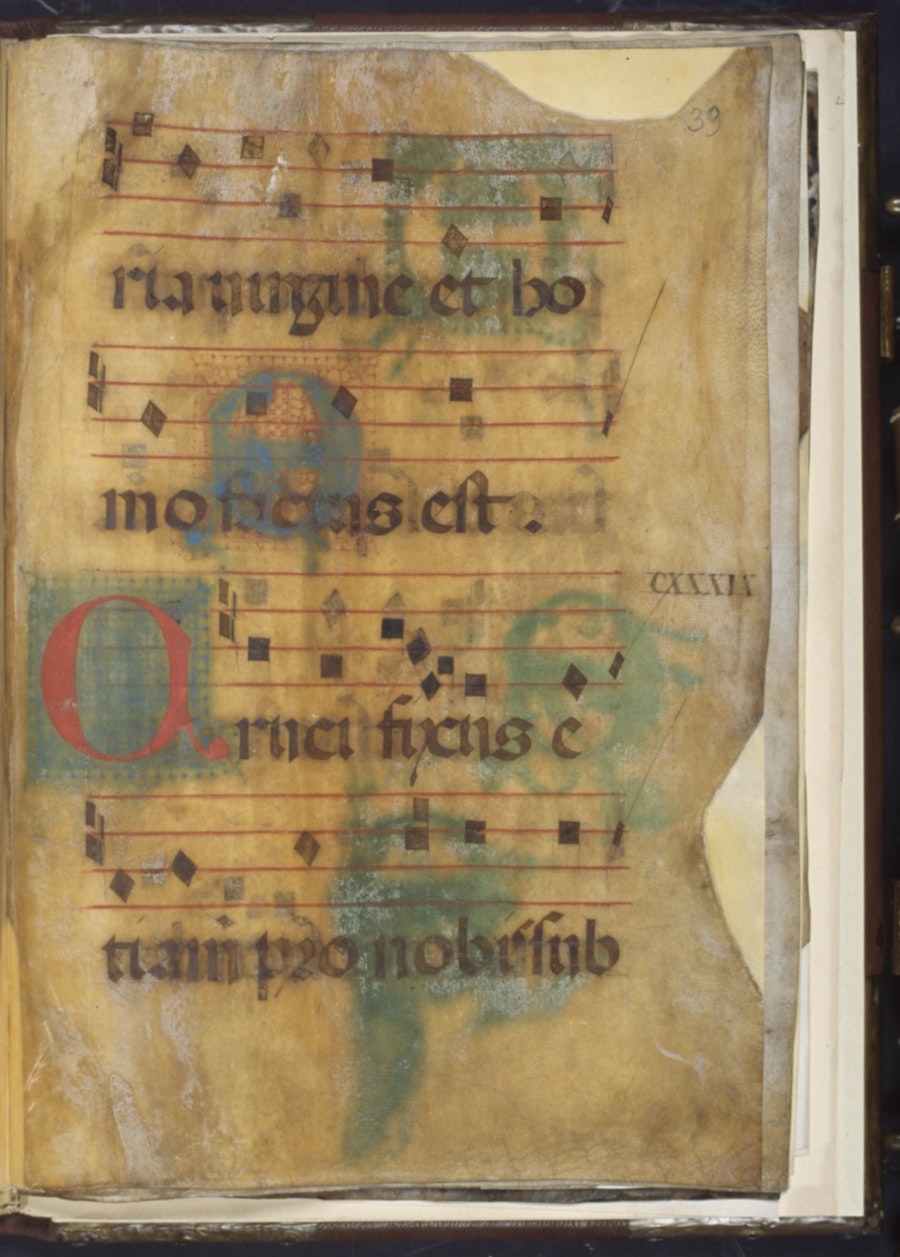 39
ria uirgine et ho
mo factus est.
CXXXIX
Cruci fixus e
tiam pro nobis sub